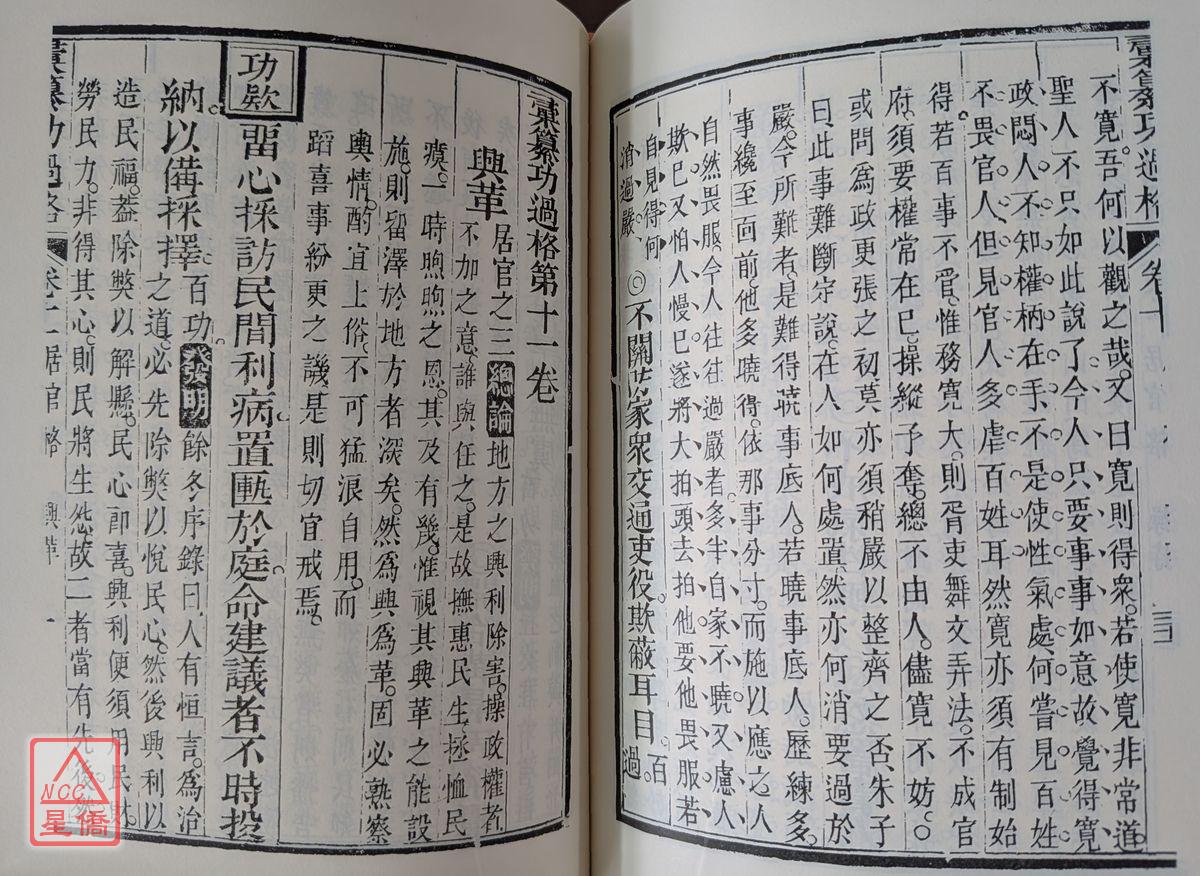 彙纂功過格 卷十
不寬。吾何以觀之哉。又曰寬則得衆。若使寬非常道
聖人不只如此說了今人只要事事如意故覺得寬
政悶人不知權柄在手不是使性氣處何嘗見百姓
不畏官人但見官人多虐百姓耳然寬亦須有制始
得若百事不管惟務寬大。則胥吏舞文弄法。不成官
府。須要權常在已。操縱予奪。總不由人。儘寬不妨。○
或問爲政更張之初莫亦須稍嚴以整齊之否朱子
曰此事難斷定說。在人如何處置。然亦何消要過於
嚴。今所難者。是難得曉事底人。若曉事底人。歷練多。
事纔至面前。他多曉得。依那事分寸。而施以應之人
自然畏服今人往往過嚴者多半自家不曉又慮人
欺已又怕人慢已遂將大拍頭去拍他要他畏服若
自見得何
消過嚴
◎不關防家衆交通吏役欺蔽耳目
百
過。
彙纂功過格第十一卷
興革
居官之三
總論
地方之興利除害。操政權者
不加之意。誰與任之。是故撫惠民生。拯恤民
瘼。一時煦煦之恩。其及有幾。惟視其興革之能設
施。則留澤於地方者深矣。然爲興爲革。固必熟察
輿情。酌宜上俗。不可猛浪自用。而
蹈喜事紛更之譏是則切宜戒焉。
功欵
畱心採訪民間利病置匭於庭命建議者不時投
納以備採擇
百功。
發明
餘冬序錄曰。人有恒言。爲治
之道。必先除獘以悅民心。然後興利以
造民福。葢除獘以解懸。民心卽喜。興利便須用民財。
勞民力。非得其心。則民將生怨。故二者當有先後。然
彙纂功過格 卷十一 居官格 興革 一
NCC
星僑